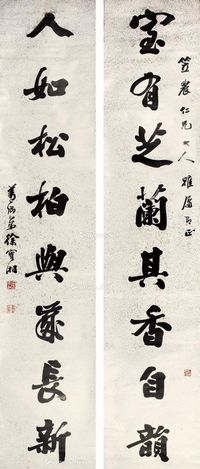 室有芝蘭其香自韻
笠農仁兄大人雅屬即正
人如松柏與歲長新
徐寶湘